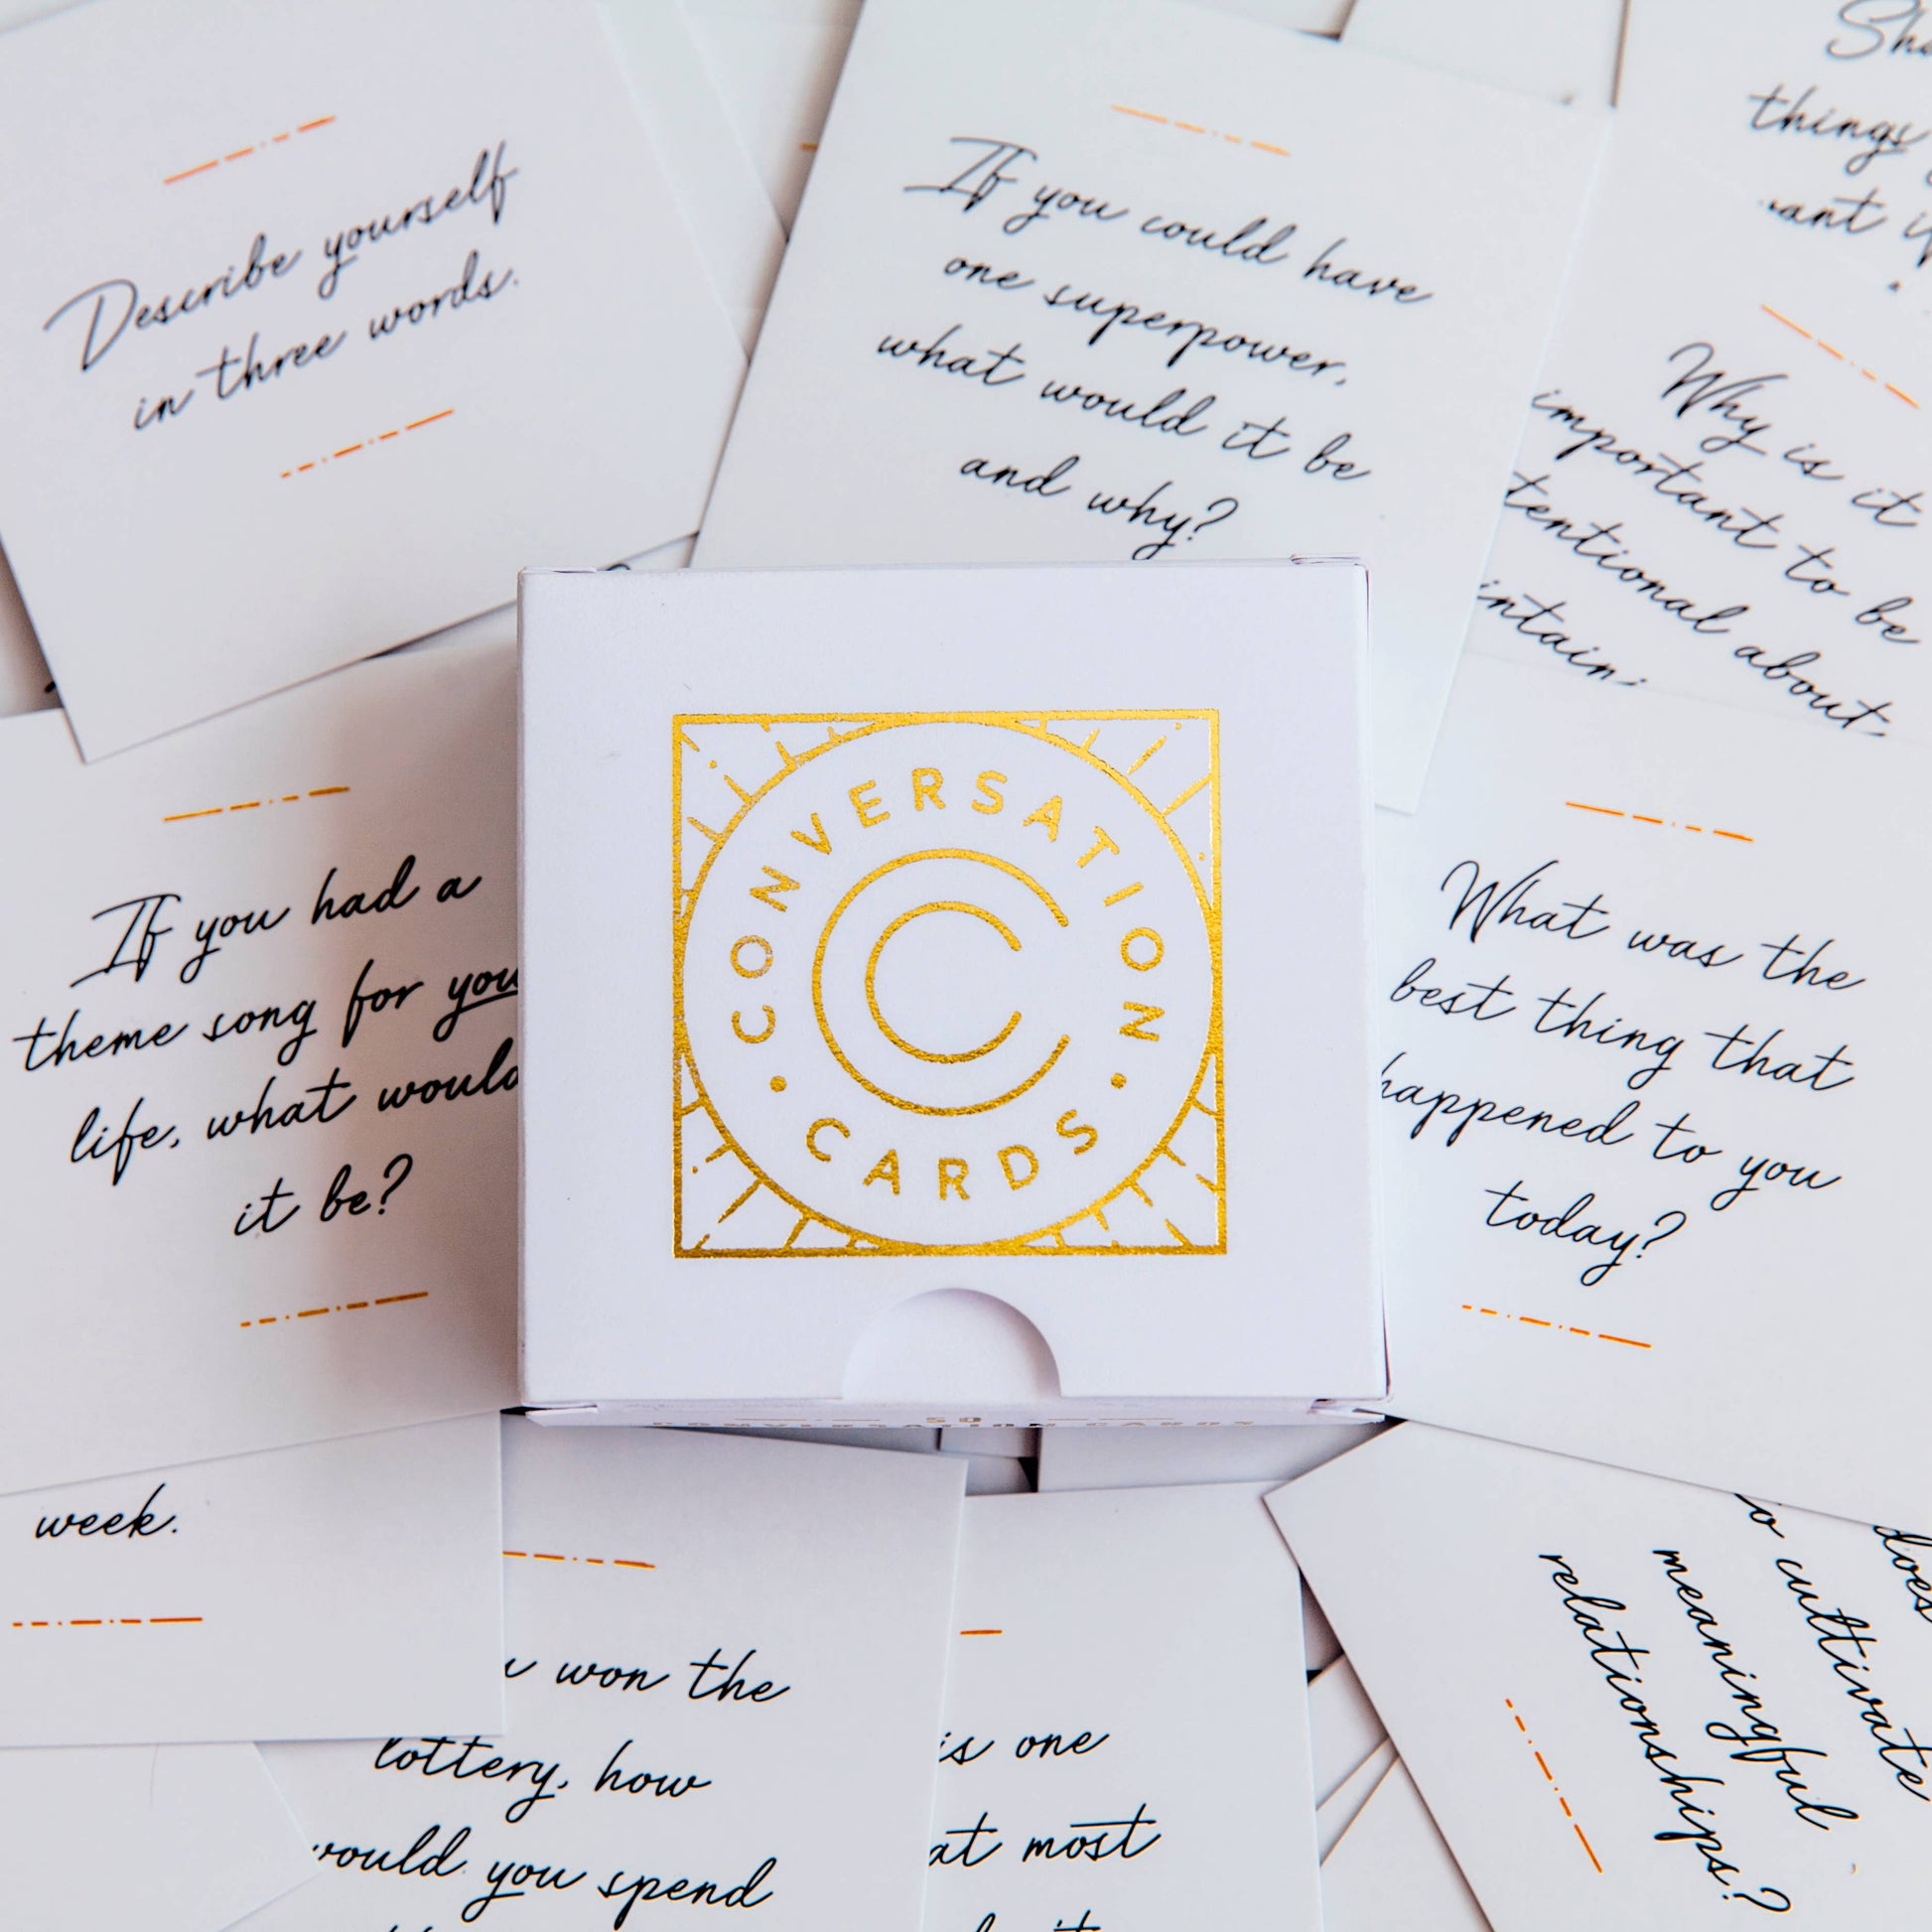 Describe yourself
in three words.
If you could have
one superpower,
what would it be
and why?
things
Why is it
important to be
about
If you had a
theme song for
life, what
it be?
CONVERSATION
CARDS
What was the
best thing that
happened to you
today?
week.
won the
lottery, how
would you spend
is one
most
to cultivate
meaningful
relationships?